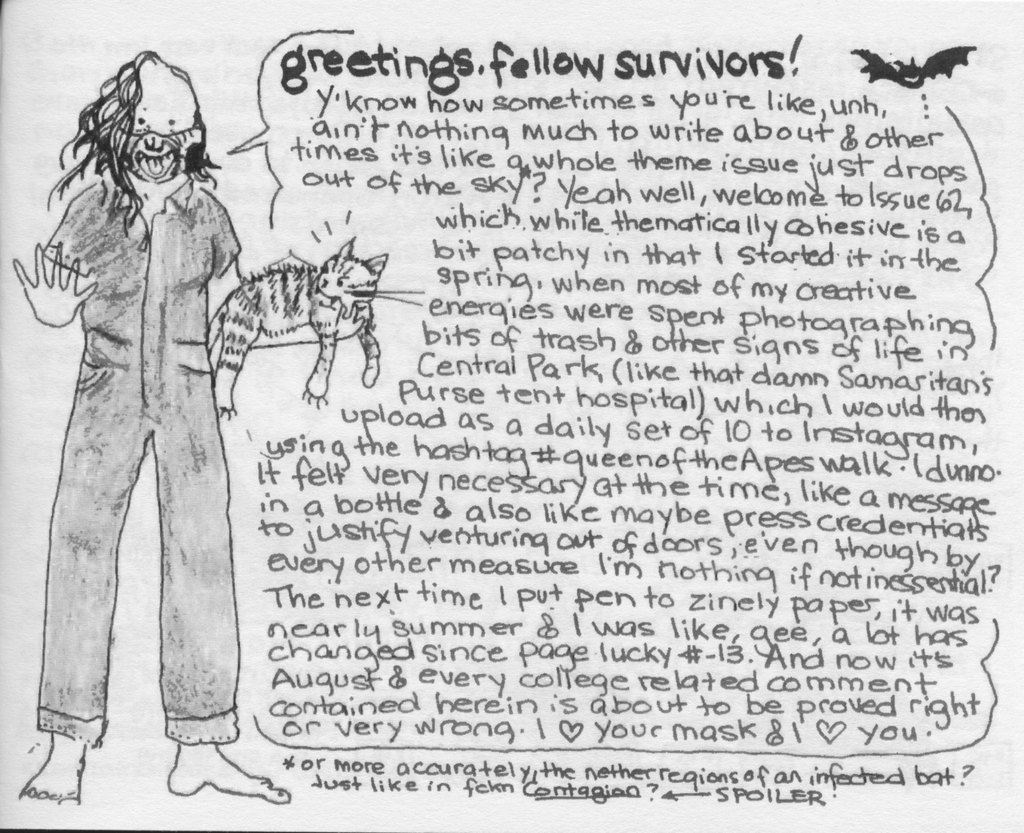 greetings, fellow survivors!
Y'know how sometimes you're like, unh,
ain't nothing much to write about & other
times it's like a whole theme issue just drops
out of the sky*? Yeah well, welcome to Issue 62,
which, while thematically cohesive is a
bit patchy in that I started it in the
spring, when most of my creative
energies were spent photographing
bits of trash & other signs of life in
Central Park, (like that damn Samaritan's
Purse tent hospital) which I would then
upload as a daily set of 10 to Instagram,
using the hashtag #queenoftheApeswalk. I dunno.
It felt very necessary at the time, like a message
in a bottle & also like maybe press credentials
to justify venturing out of doors, even though by
every other measure I'm nothing if not inessential?
The next time I put pen to zinely paper, it was
nearly summer & I was like, gee, a lot has
changed since page lucky #-13. And now it's
August & every college related comment
contained herein is about to be proved right
or very wrong. I ♡ your mask & I ♡ you.
*or more accurately, the nether regions of an infected bat?
Just like in fckn Contagion? ← SPOILER!